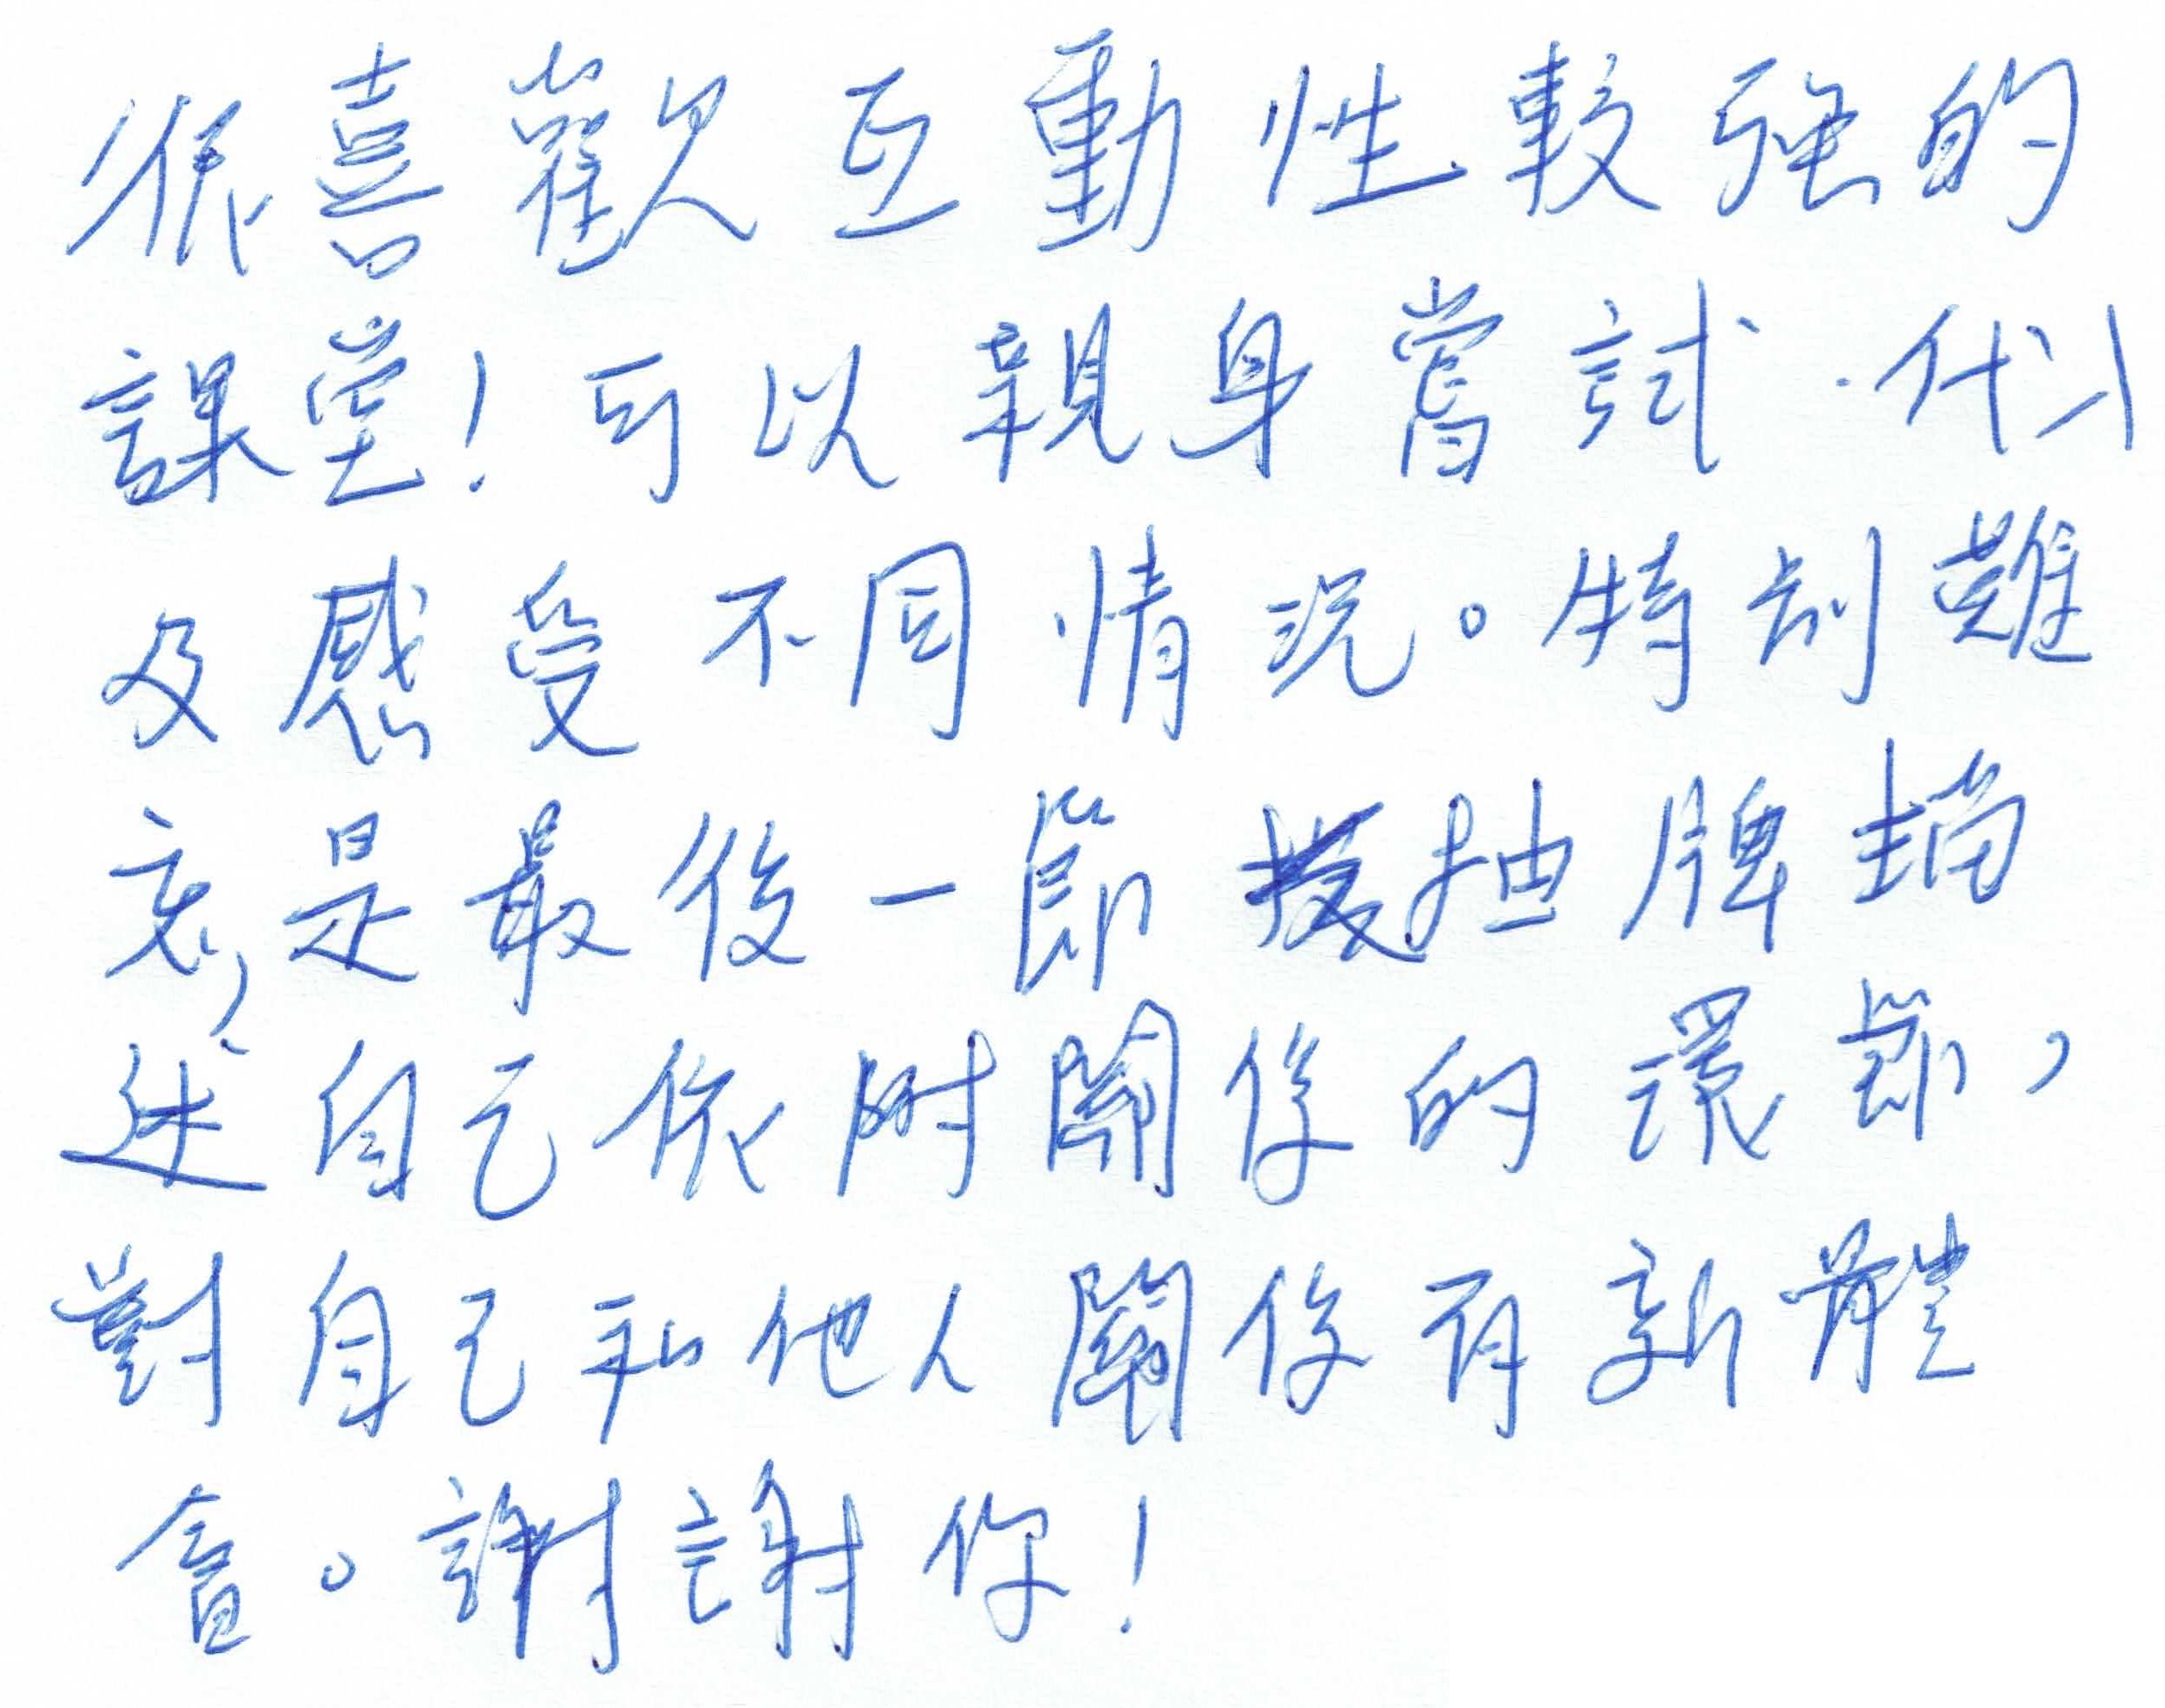 很喜歡互動性較强的
課堂！可以親身嘗試、代入
及感受不同情況。特別難
忘是最後一節抽牌描
述自己依附關係的環節，
對自己和他人關係有新體
會。謝謝你！